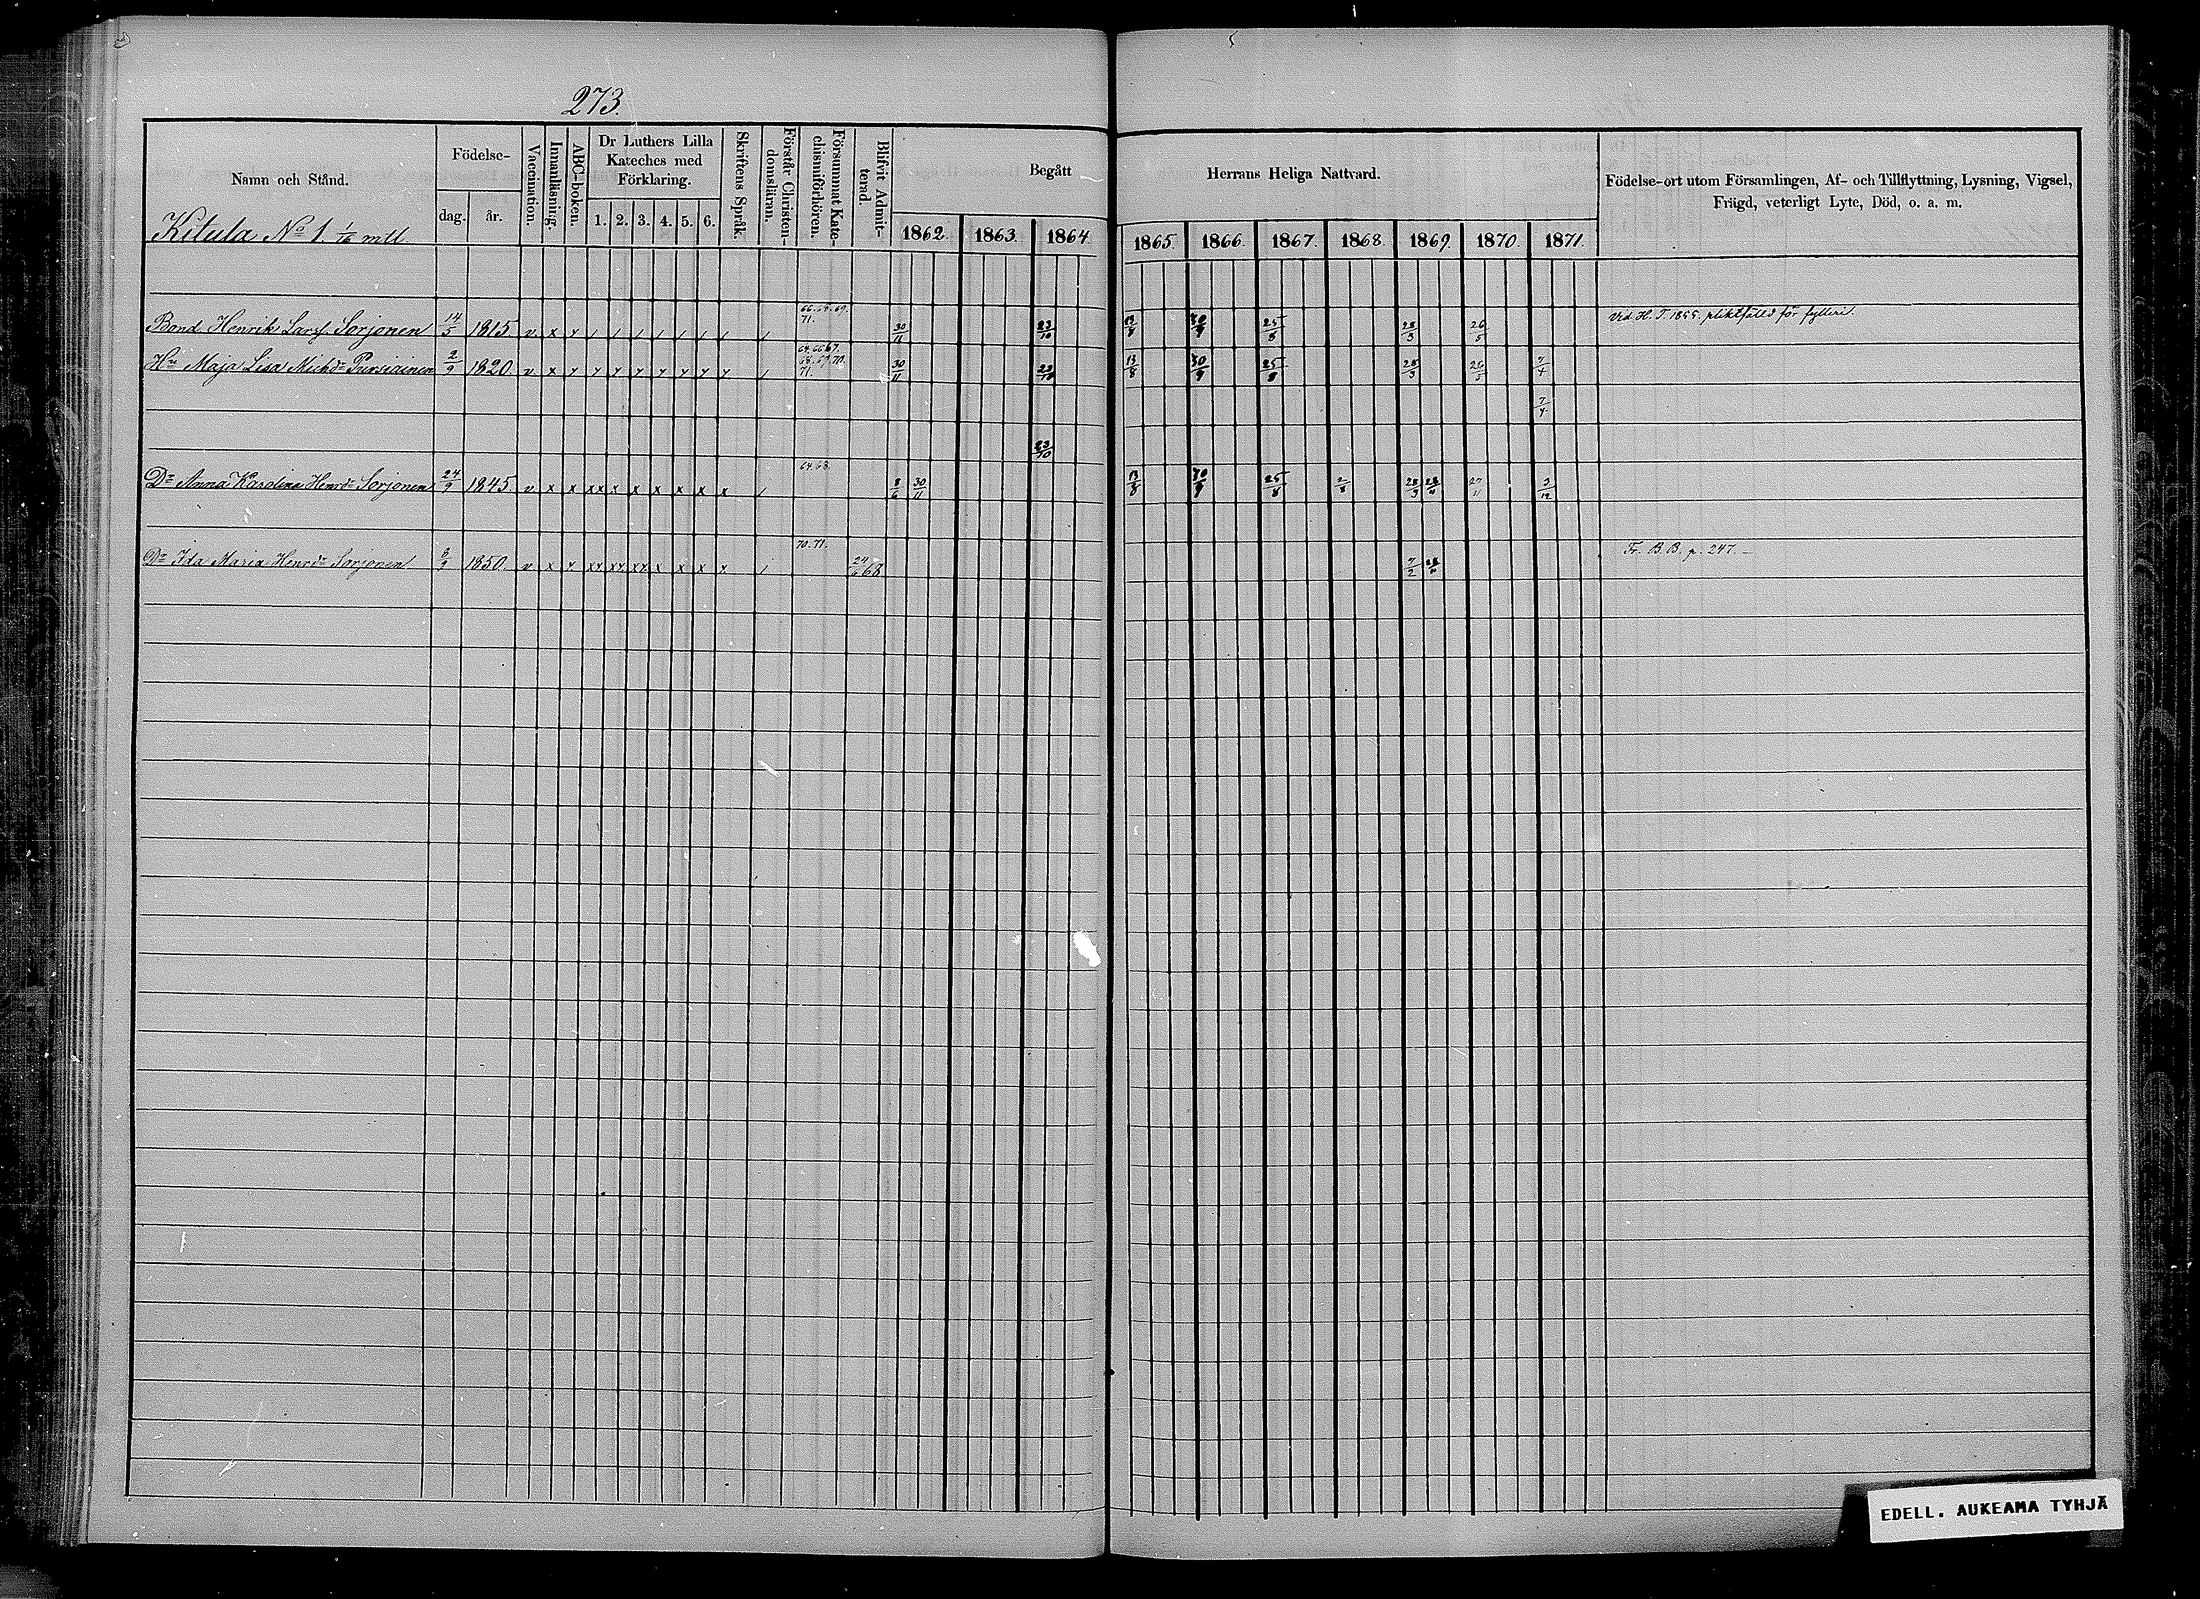 273.
Namn och Stånd.
Födelse-
dag.
år.
Vaccination.
Innanläsning.
ABC-boken.
Dr Luthers Lilla
Kateches med
Förklaring.
1. 2. 3. 4. 5. 6.
Skriftens Språk.
Förstår Christen-
domsläran.
Försummat Kate-
chismiförhören.
Blifvit Admit-
terad.
Begått
Herrans Heliga Nattvard.
1862. 1863. 1864. 1865. 1866. 1867. 1868. 1869. 1870. 1871.
Födelse-ort utom Församlingen, Af- och Tillflyttning, Lysning, Vigsel,
Frägd, veterligt Lyte, Död, o. a. m.
Kitula No 1. 1/16 mtl.
66. 67. 69.
Bond. Henrik Larsf. Sorjonen 14/5 1815. v x y / / / / / / / / 71. 30/11 23/10 13/8 30/9 25/8 28/3 26/5 vid H. T. 1855. pliktfälld för fylleri.
64. 66 67.
68. 69. 70.
Hu Maja Lisa Michdr Pursiainen 2/9 1820. v x y y y y y y y y / 71. 30/11 23/10 13/8 30/9 25/8 28/3 26/5 7/4
7/4
23/10
64 68.
Dr Anna Karolina Henrdr Sorjonen 24/9 1845 v x x xx x x x x x x / 8/6 30/11 13/8 30/9 25/8 2/8 28/3 28/11 27/11 3/12
70. 71. Fr. B. B. p. 247.
Dr Ida Maria Henrdr Sorjonen 1850. v x y xy xy xx x x x x / 24/6 68 7/2 28/11
EDELL. AUKEAMA TYHJÄ